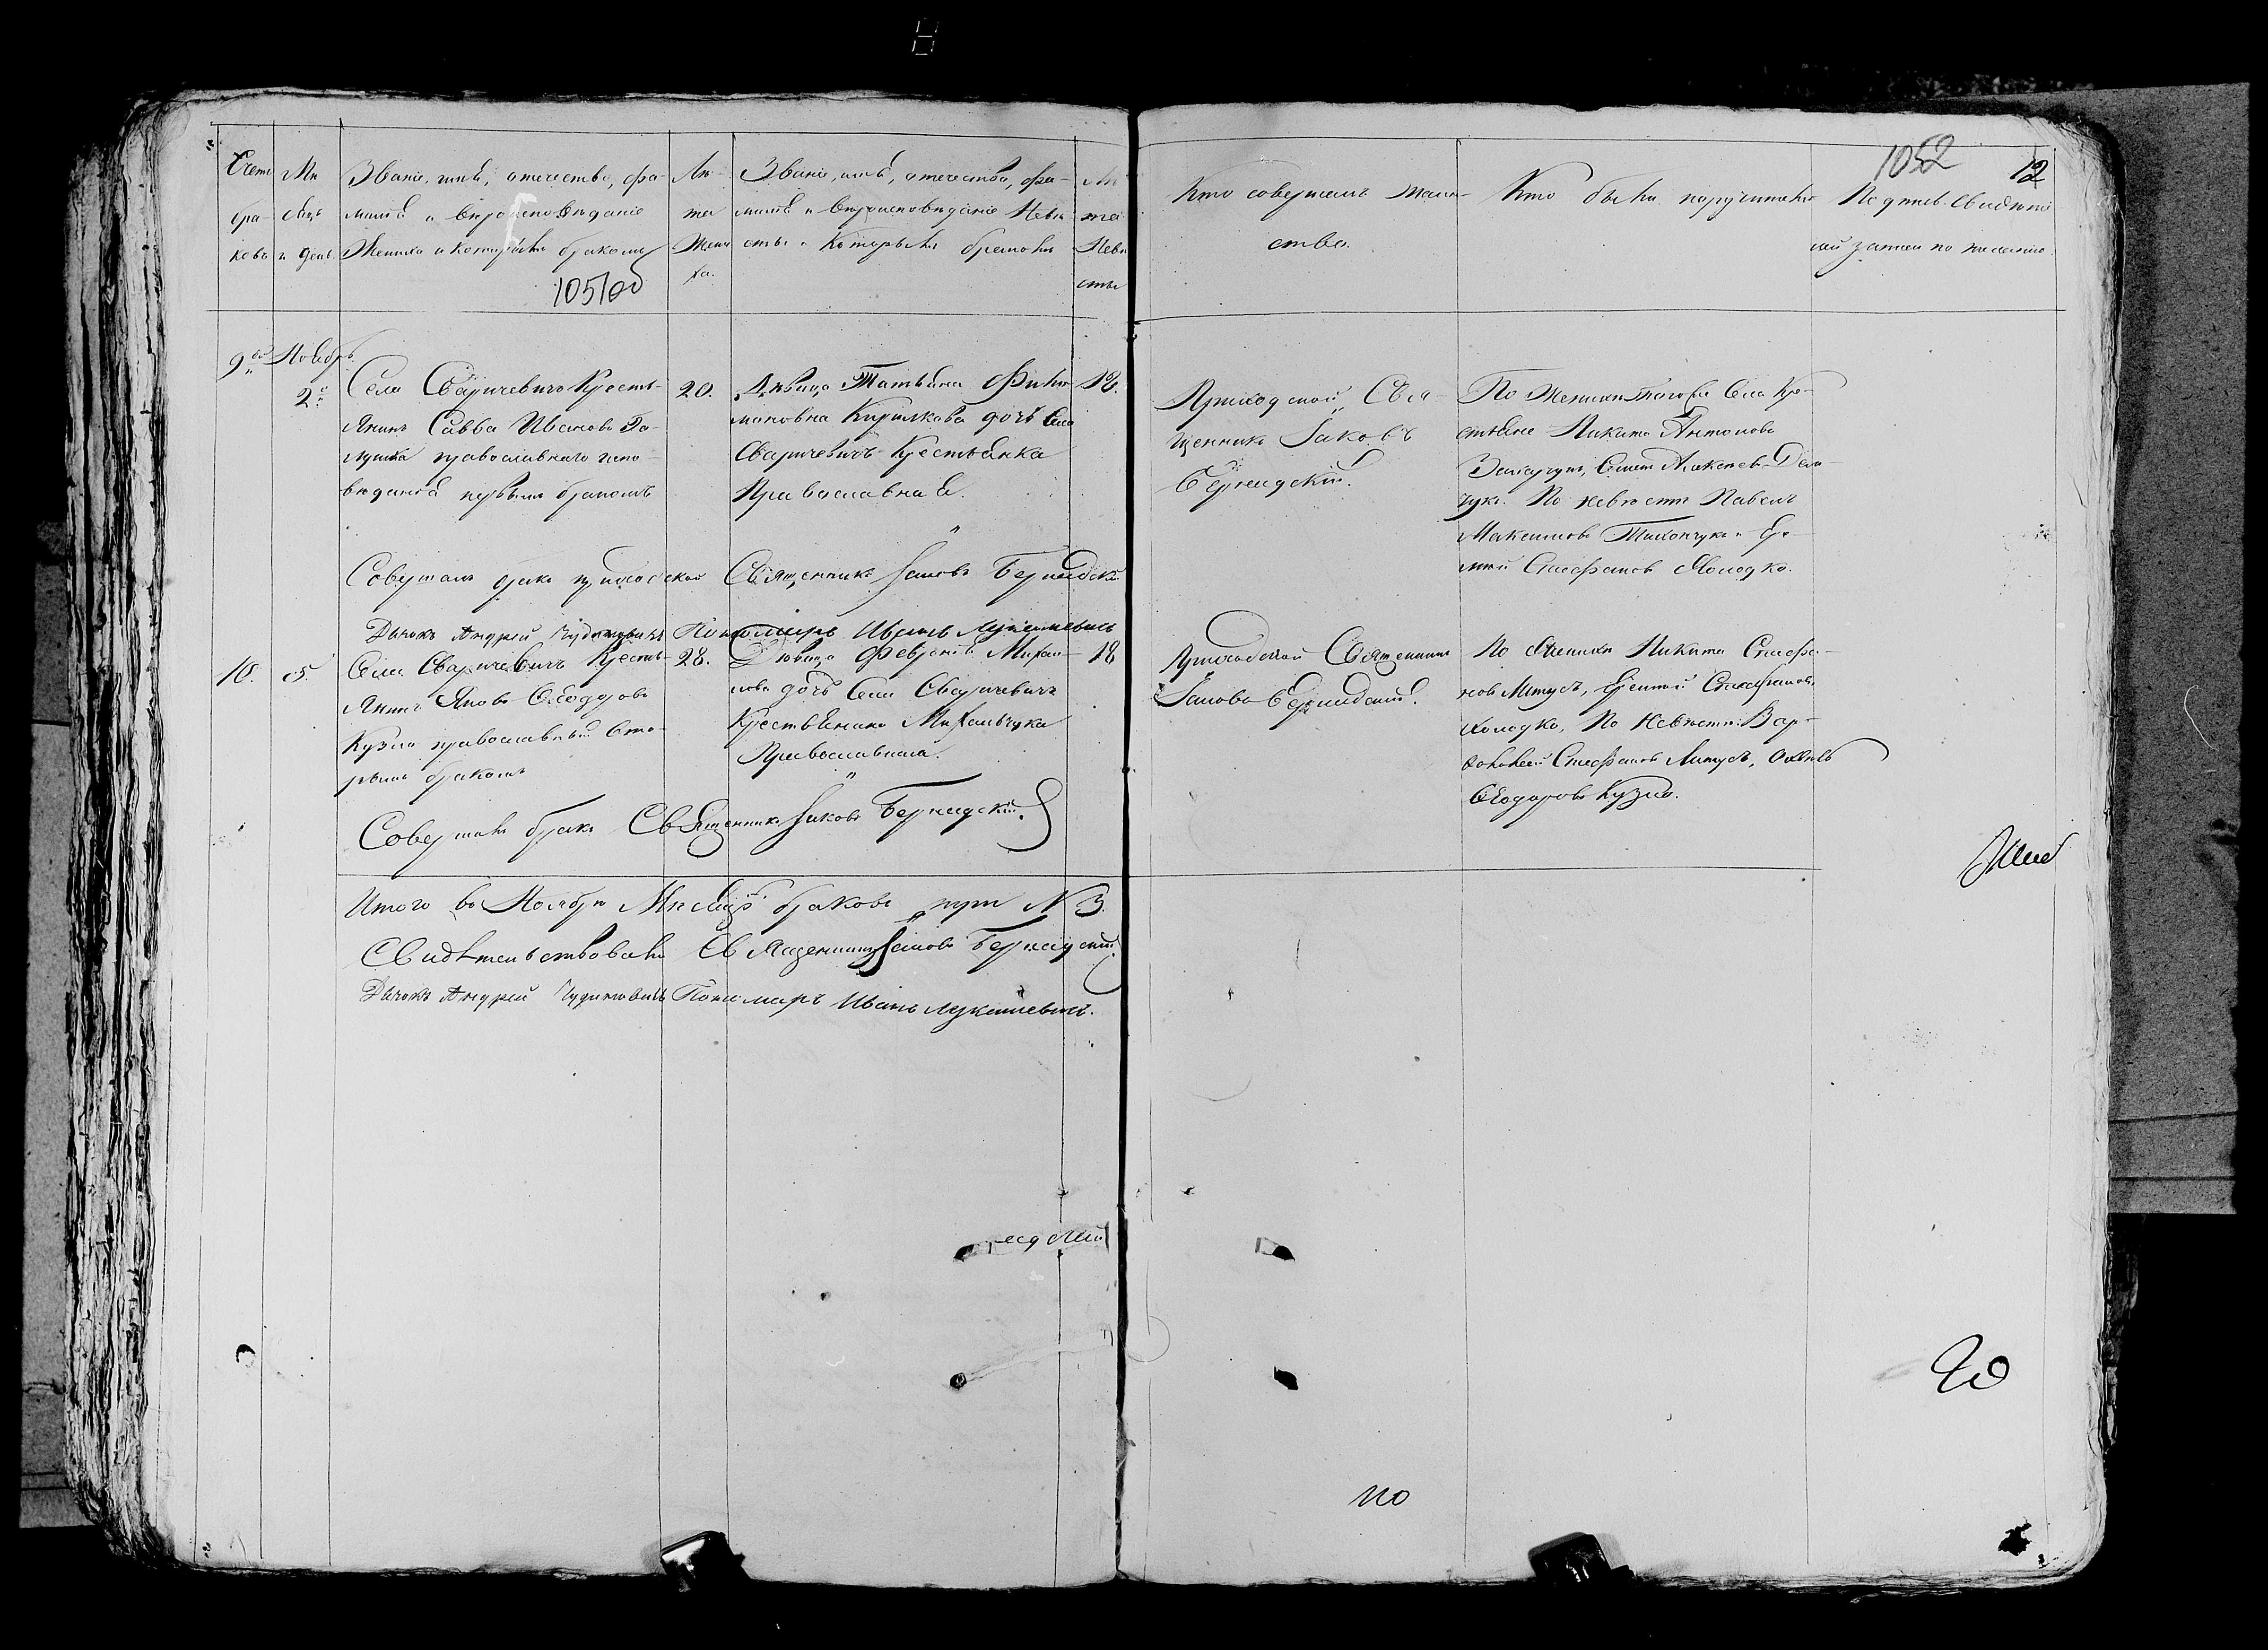 1052 12
Счетъ
бра-
ковъ
Мѣ
сяцъ
и день.
Званіе, имя, отечество, фа-
милія и вѣроисповѣданіе
Жениха и которымъ бракомъ
105/об
Лѣ-
та
Жени
ха.
Званіе, имя, отечество, фа-
милія и вѣроисповѣданіе Невѣ
сты и которымъ бракомъ
Лѣ
та
Невѣ
сты
Кто совершалъ таин-
ство.
Кто были поручители
Подпись свидѣте
лей записи по желанію.
9. Ноябрь.
2
Села Сваричевичъ Кресть-
янинъ Савва Ивановъ
православнаго испо-
вѣданія первымъ бракомъ
20.
Дѣвица Татьяна Фили
моновна Кирилкова дочь Села
Сваричевичъ Крестьянка
Православная.
18.
Приходской Свя-
щенникъ Іаковъ
Бернадскій.
По Женихѣ тогоже Села Кре-
стьяне Никита Антоновъ
По невѣстѣ Павелъ
Максимовъ Тихончукъ и Ере-
мій Стефановъ Холодко.
Совершалъ бракъ приходской Священникъ Іаковъ Бернадскій
Дьячокъ Андрей Чудиновичъ Пономарь Иванъ Лукашевичъ
10. 5.
Села Сваричевичъ Кресть-
янинъ Яковъ Ѳеодоровъ
Кузло православный вто-
рымъ бракомъ
28.
Дѣвица Февронія Михаи-
лова дочь Села Сваричевичъ
Крестьянка Михальчука
Православная.
18
Приходской Священникъ
Іаковъ Бернадскій.
По Женихѣ Никита Стефа-
новъ Митусь, Еремій Стефановъ
Холодко, По Невѣстѣ: Вар-
ѳоломей Стефановъ Митусь,
Ѳеодоровъ Кузло.
Совершалъ бракъ Священникъ Іаковъ Бернадскій.
Итого въ Ноябрѣ Мѣсяцѣ браковъ три N 3.
Свидѣтельствовали Священникъ Іаковъ Бернадскій
Дьячокъ Андрей Чудиновичъ Пономарь Иванъ Лукашевичъ.
по